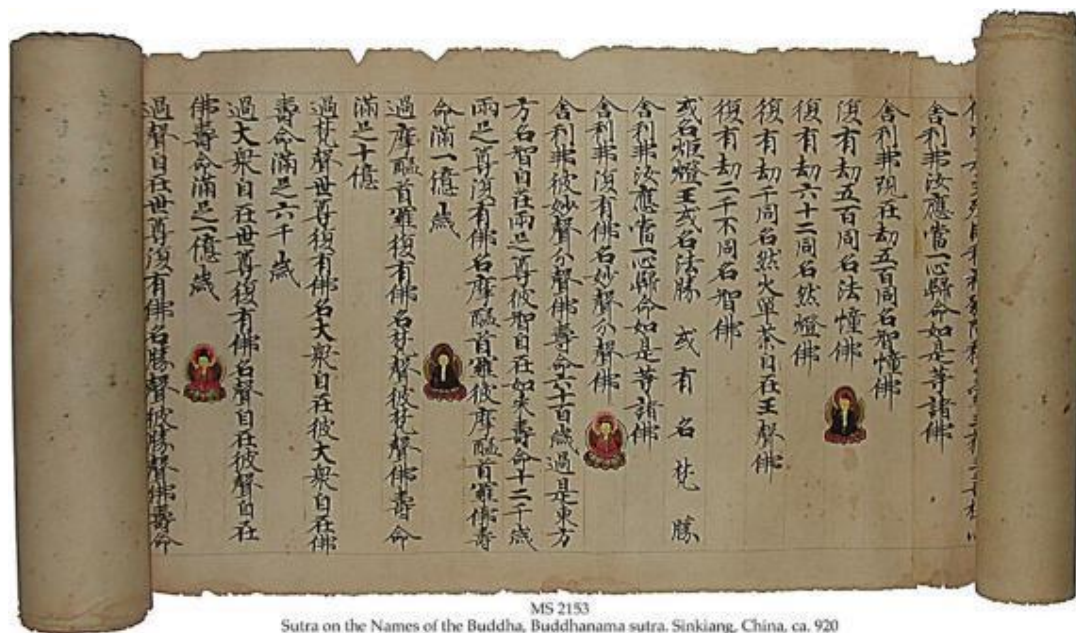 舍利弗汝應當一心歸命如是等諸佛
舍利弗現在劫五百同名智幢佛
復有劫五百同名法幢佛
復有劫六十二同名然燈佛
復有劫千同名然火單荼自在王聲佛
復有劫二千不同名智佛
或名炬燈王或名法勝 或有名梵勝
舍利弗汝應當一心歸命如是等諸佛
舍利弗復有佛名妙聲分聲佛
舍利弗彼妙聲分聲佛壽命六十百歲過是東方
方名智自在兩足之尊彼智自在如来壽命十二千歲
兩足尊復有佛名摩醯首羅彼摩醯首羅佛壽
命滿一億歲
過摩醯首羅復有佛名梵聲彼梵聲佛壽命
滿足十億
過梵聲世尊復有佛名大衆自在彼大衆自在佛
壽命滿足六千歲
過大衆自在世尊復有佛名聲自在彼聲自在
佛壽命滿足一億歲
過聲自在世尊復有佛名勝聲彼勝聲佛壽命
MS 2153
Sutra on the Names of the Buddha, Buddhanama sutra. Sinkiang, China, ca. 920